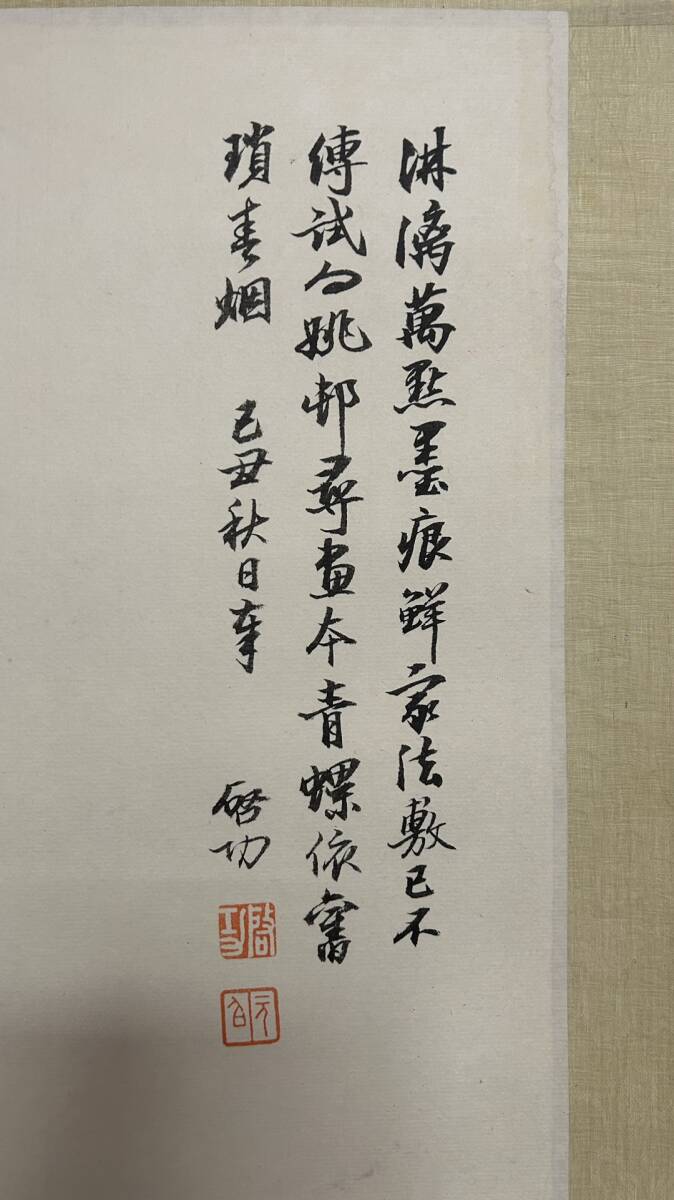 淋漓萬點墨痕鮮家法敷已不
傳試向姚邨尋畫本青螺依舊
瑣春烟 己丑秋日筆 啓功
啓功
元白